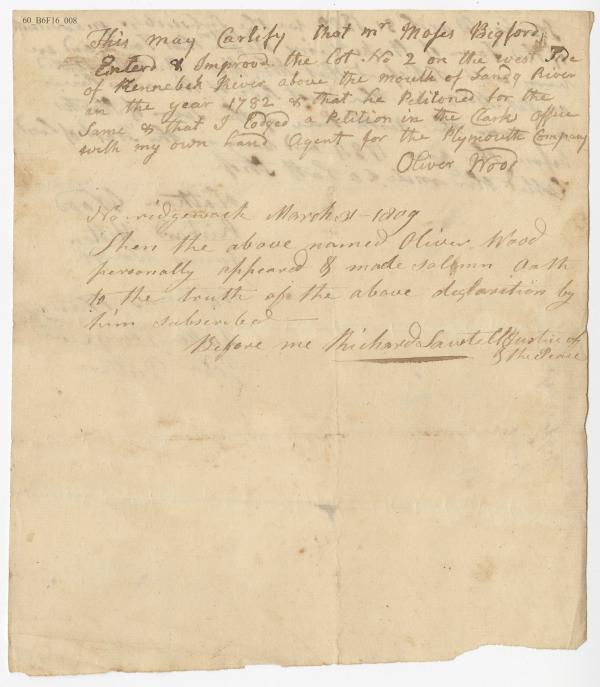 60_B6F16_008
This may Cartify that mr Moses Bigford
Enterd & Improvd the Lot No 2 on the west Side
of Kennebek River above the mouth of Sandy River
in the year 1782 & that he Petitoned for the
Same & that I Lodged a Petition in the Clark Office
with my own hand Agent for the Plymouth Company
Oliver Wood
Norridgewock March 21-1809
Then the above named Oliver Wood
personally appeared & made Solemn Oath
to the truth of the above declaration by
him subscribed
Before me Richard Sawtell Justice of
the Peace